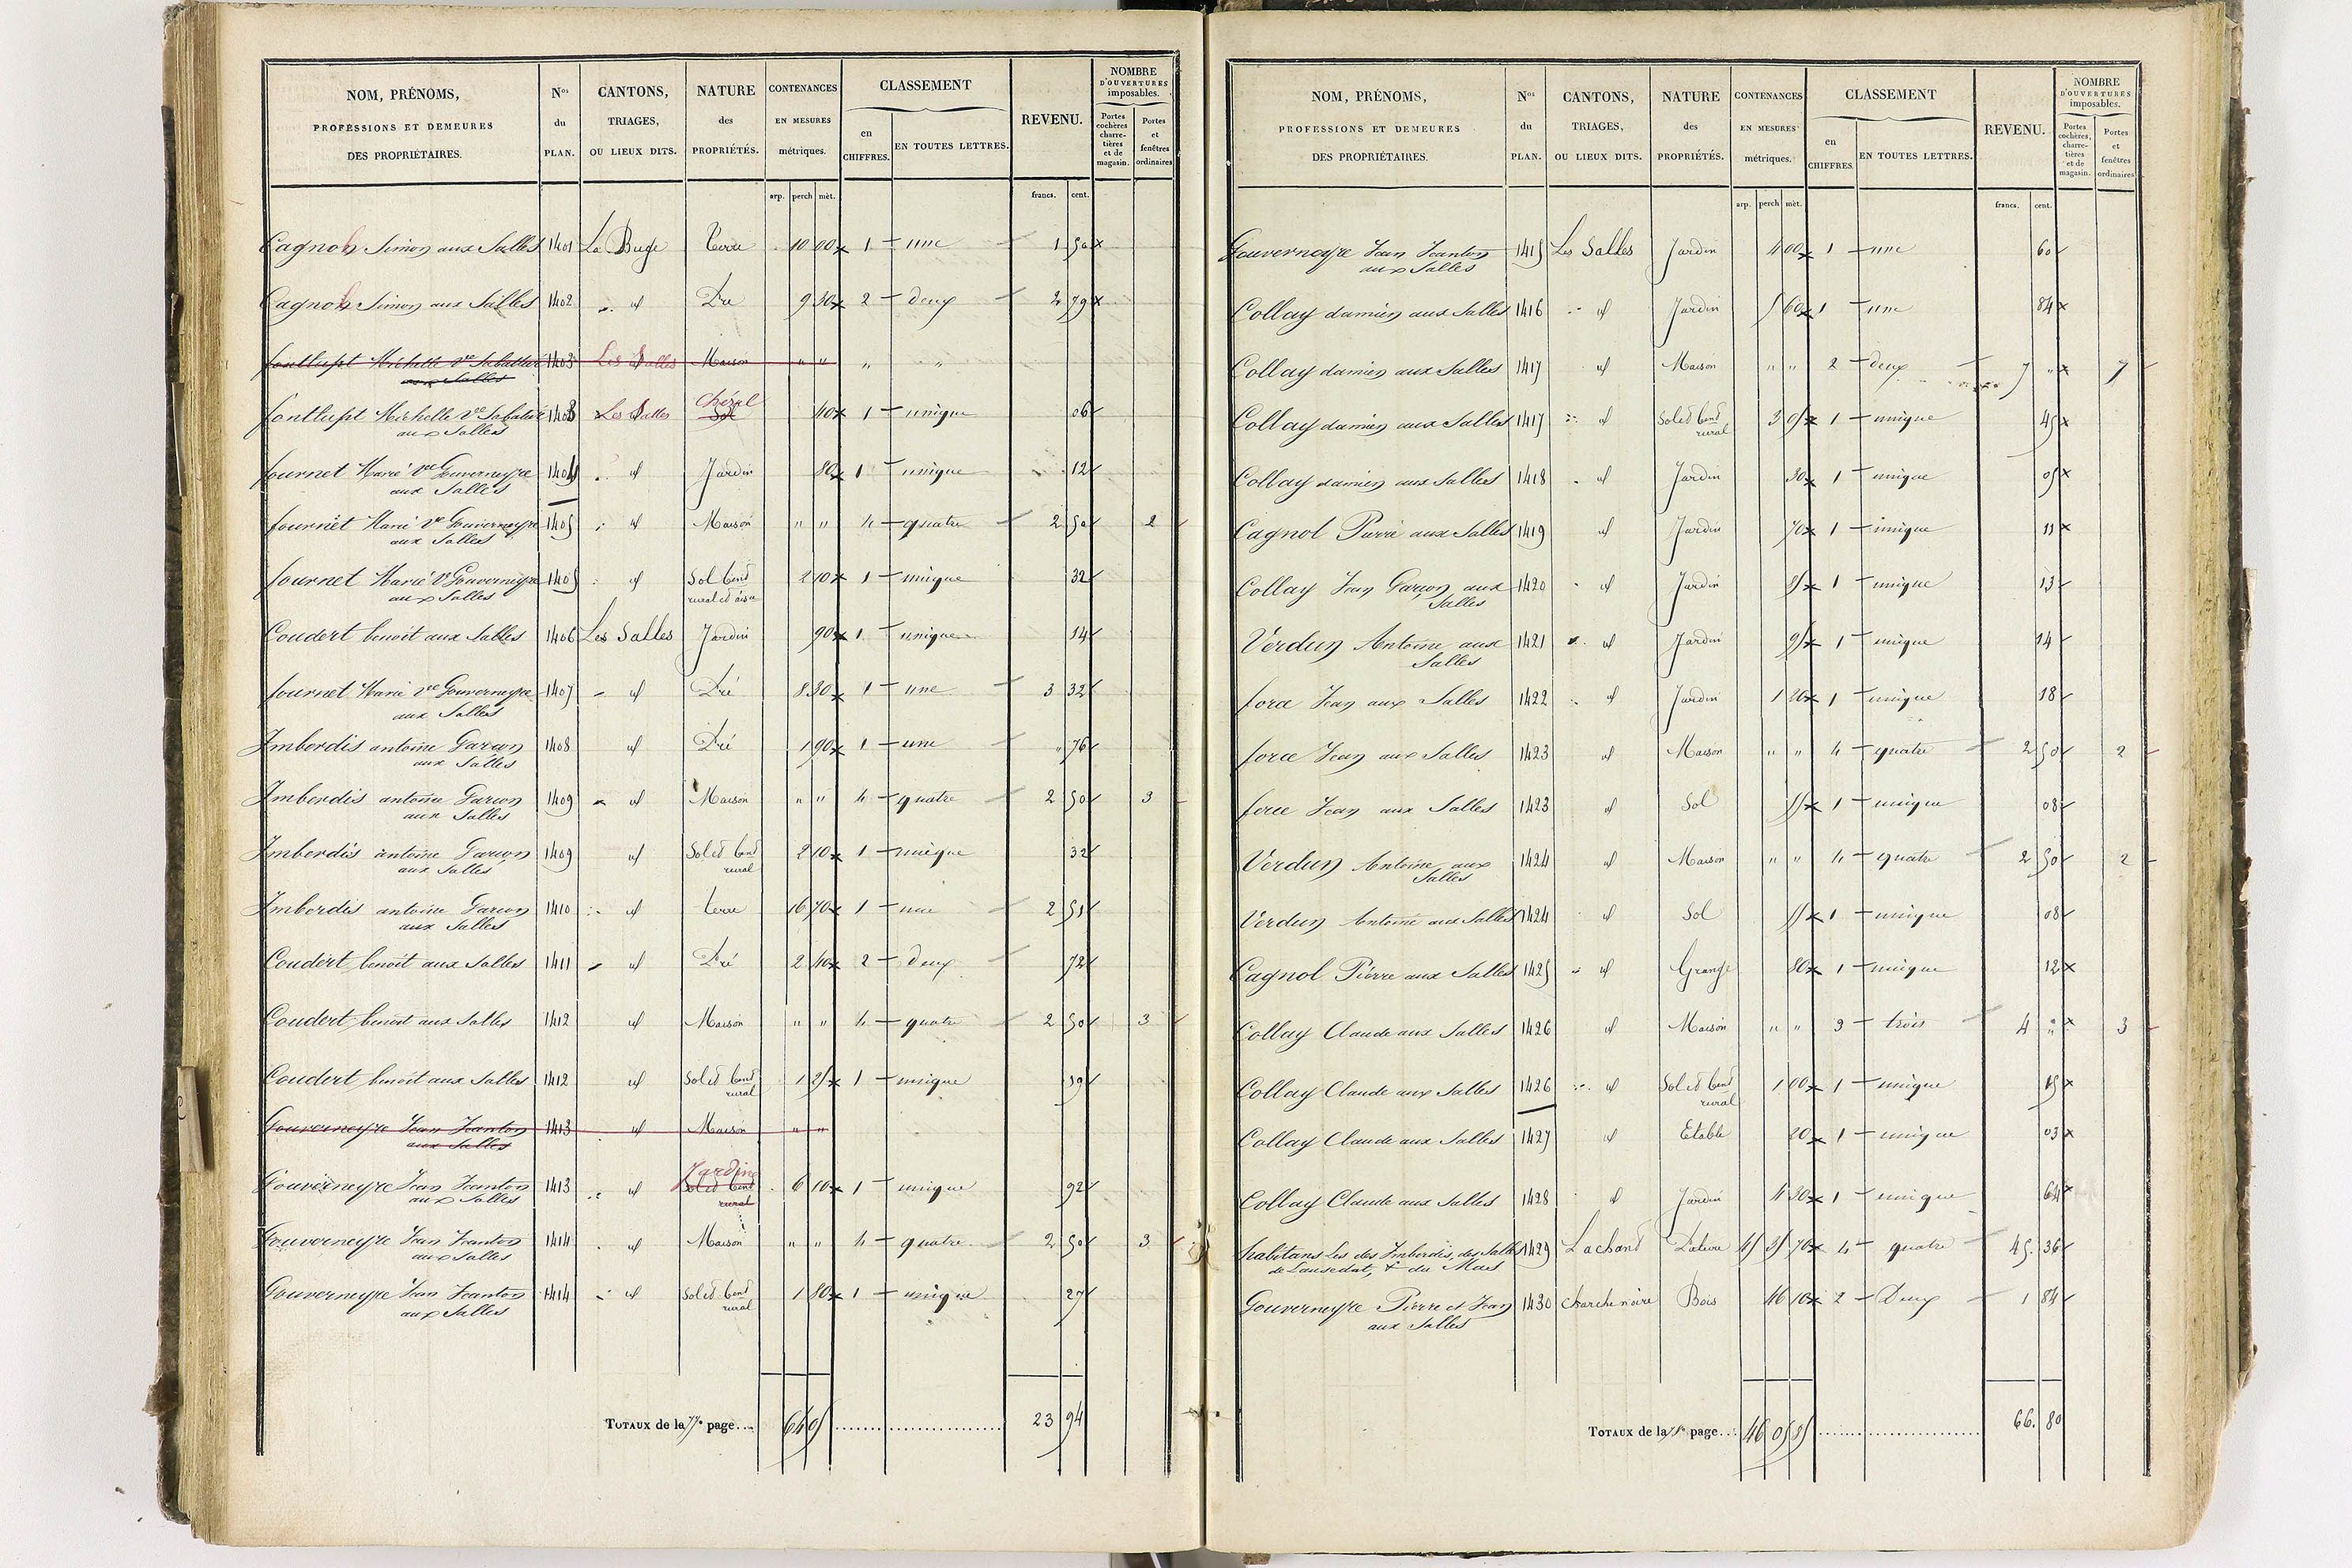 NOM, PRÉNOMS, PROFESSIONS ET DEMEURES DES PROPRIÉTAIRES. Nos du PLAN. CANTONS, TRIAGES, OU LIEUX DITS. NATURE des PROPRIÉTÉS. CONTENANCES EN MESURES métriques. CLASSEMENT en CHIFFRES. EN TOUTES LETTRES. REVENU. NOMBRE D'OUVERTURES imposables. Portes cochères charretières et de magasin. Portes et fenêtres ordinaires
arp. perch mèt. francs. cent.
Cagnol Simon aux Salles 1401 La Buge terre 10 00 1 une 1 50
Cagnol Simon aux Salles 1402 id Pré 9 30 2 deux 2 79
fontlupt Michelle Ve Sabatier 1403 Les Salles Maison " " " "
aux Salles
fontlupt Michelle Ve Sabatier 1403 Les Salles chézal Sol 40 1 unique 06
aux Salles
fournet Marie Ve Gouverneyre 1404 id Jardin 80 1 unique 12
aux Salles
fournet Marie Ve Gouverneyre 1405 id Maison " " 4 quatre 2 50 2
aux Salles
fournet Marie Ve Gouverneyre 1405 id Sol bend 2 10 1 unique 32
aux Salles rural et
Coudert benoit aux Salles 1406 Les Salles Jardin 90 1 unique 14
fournet Marie Ve Gouverneyre 1407 id Pré 8 30 1 une 3 32
aux Salles
Imberdis antoine Garçon 1408 id Pré 1 90 1 une " 76
aux Salles
Imberdis antoine Garçon 1409 id Maison " " 4 quatre 2 50 3
aux Salles
Imberdis antoine Garçon 1409 id Sol et bend 2 10 1 unique 32
aux Salles rural
Imberdis antoine Garçon 1410 id terre 16 70 1 une 2 51
aux Salles
Coudert benoit aux Salles 1411 id Pré 2 40 2 deux 72
Coudert benoit aux Salles 1412 id Maison " " 4 quatre 2 50 3
Coudert benoit aux Salles 1412 id Sol et bend 1 25 1 unique 19
rural
Gouverneyre Jean Jeanton 1413 id Maison " "
aux Salles
Jardin
Gouverneyre Jean Jeanton 1413 id Sol et bend 6 10 1 unique 92
aux Salles rural
Gouverneyre Jean Jeanton 1414 id Maison " " 4 quatre 2 50 3
aux Salles
Gouverneyre Jean Jeanton 1414 id Sol et bend 1 80 1 unique 27
aux Salles rural
TOTAUX de la 77e page... 64 05 23 94
NOM, PRÉNOMS, PROFESSIONS ET DEMEURES DES PROPRIÉTAIRES. Nos du PLAN. CANTONS, TRIAGES, OU LIEUX DITS. NATURE des PROPRIÉTÉS. CONTENANCES EN MESURES métriques. CLASSEMENT en CHIFFRES. EN TOUTES LETTRES. REVENU. NOMBRE D'OUVERTURES imposables. Portes cochères, charretières et de magasin. Portes et fenêtres ordinaires
arp. perch mèt. francs. cent.
Gouverneyre Jean Jeanton 1415 Les Salles Jardin 4 00 1 une 60
aux Salles
Collay damien aux Salles 1416 id Jardin 5 60 1 une 84
Collay damien aux Salles 1417 id Maison " " 2 deux 7 " 7
Collay damien aux Salles 1417 id Sol et bend 3 05 1 unique 45
rural
Collay damien aux Salles 1418 id Jardin 30 1 unique 05
Cagnol Pierre aux Salles 1419 id Jardin 70 1 unique 11
Collay Jean Garçon aux 1420 id Jardin 85 1 unique 13
Salles
Verdun Antoine aux 1421 id Jardin 95 1 unique 14
Salles
force Jean aux Salles 1422 id Jardin 1 20 1 unique 18
force Jean aux Salles 1423 id Maison " " 4 quatre 2 50 2
force Jean aux Salles 1423 id Sol 55 1 unique 08
Verdun Antoine aux 1424 id Maison " " 4 quatre 2 50 2
Salles
Verdun Antoine aux Salles 1424 id Sol 55 1 unique 08
Cagnol Pierre aux Salles 1425 id Grange 80 1 unique 12
Collay Claude aux Salles 1426 id Maison " " 3 trois 4 " 3
Collay Claude aux Salles 1426 id Sol et bend 1 00 1 unique 15
rural
Collay Claude aux Salles 1427 id Etable 20 1 unique 03
Collay Claude aux Salles 1428 id Jardin 4 30 1 unique 64
habitans Les des Imberdis, des Salles 1429 Lachand Pature 45 35 70 4 quatre 45 36
de Lausedat, & du Mas
Gouverneyre Pierre et Jean 1430 charche noire Bois 46 10 2 Deux 1 84
aux Salles
TOTAUX de la 78e page... 46 05 85 66 80